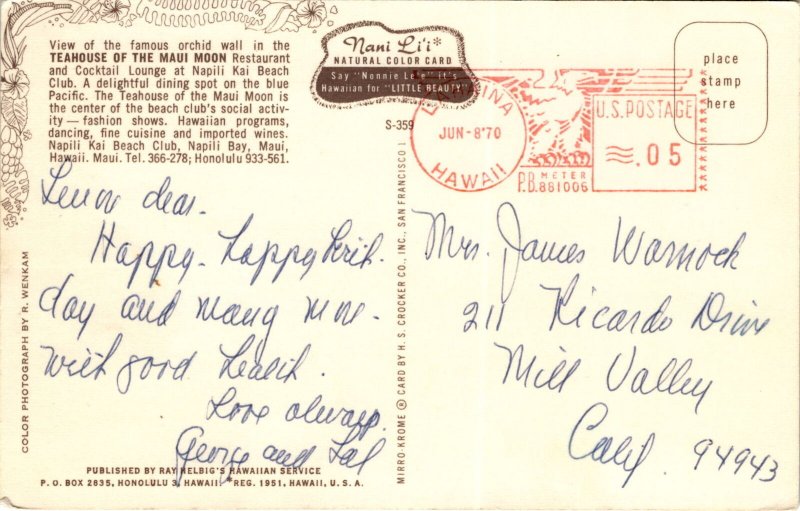 View of the famous orchid wall in the
TEAHOUSE OF THE MAUI MOON Restaurant
and Cocktail Lounge at Napili Kai Beach
Club. A delightful dining spot on the blue
Pacific. The Teahouse of the Maui Moon is
the center of the beach club's social activ-
ity — fashion shows. Hawaiian programs,
dancing, fine cuisine and imported wines.
Napili Kai Beach Club, Napili Bay, Maui,
Hawaii. Maui. Tel. 366-278; Honolulu 933-561.
Nani Li'i*
NATURAL COLOR CARD
Say "Nonnie Lee" it's
Hawaiian for "LITTLE BEAUTY"
S-359
LAHAINA
JUN-8'70
HAWAII
P.B. METER
P.B. 881006
U.S. POSTAGE
.05
place
stamp
here
dear.
Happy-Happy Birth
day and many more
with good health.
Love always
George and
COLOR PHOTOGRAPH BY R. WENKAM
MIRRO-KROME ® CARD BY H. S. CROCKER CO., INC., SAN FRANCISCO
Mrs. James Warnock
211 Ricardo Drive
Mill Valley
Calif. 94943
PUBLISHED BY RAY HELBIG'S HAWAIIAN SERVICE
P. O. BOX 2835, HONOLULU 3, HAWAII * REG. 1951, HAWAII, U. S. A.